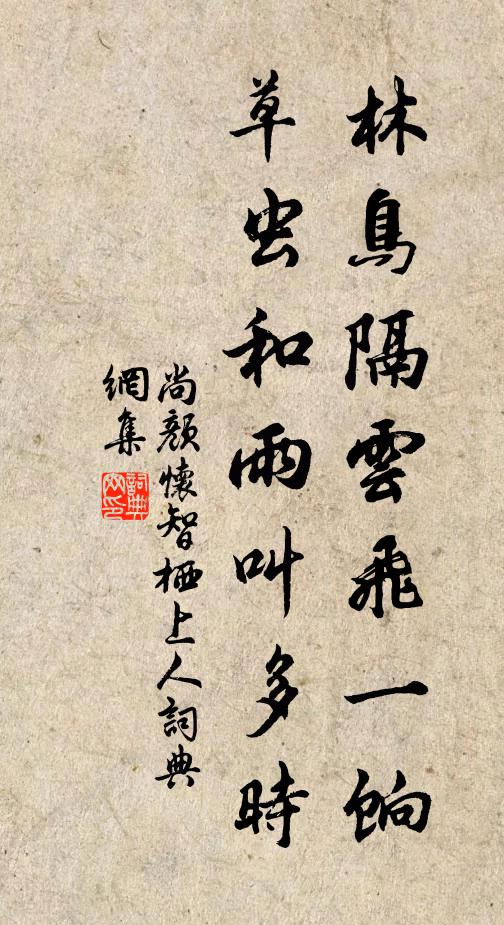 林鳥隔雲飛一餉
草虫和雨叫多時
尚顏懷智栖上人詞典
網集
詞典
网印